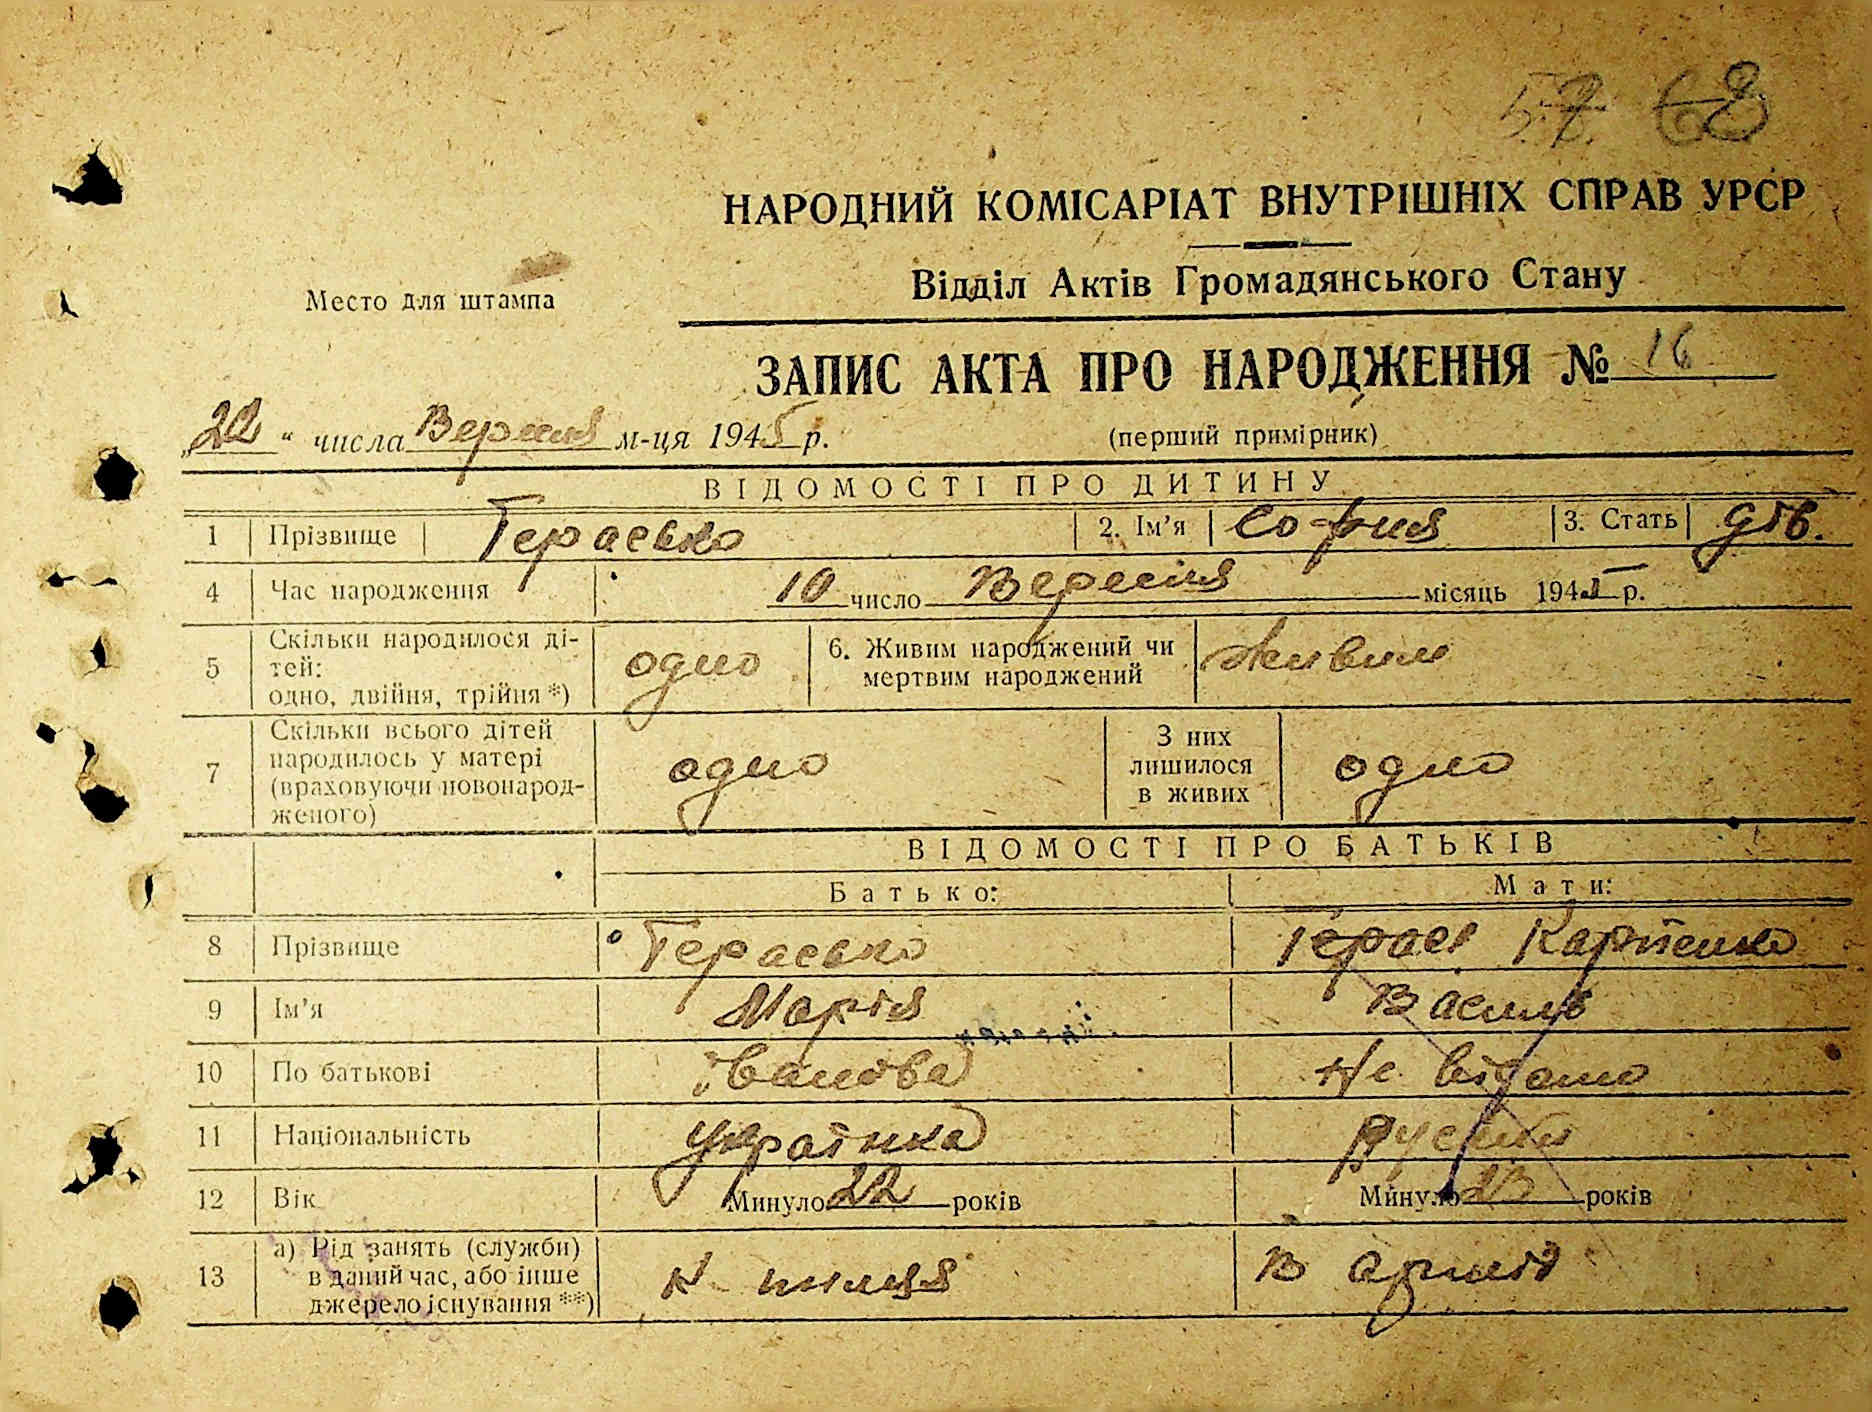 5.7. 68
НАРОДНИЙ КОМІСАРІАТ ВНУТРІШНІХ СПРАВ УРСР
Відділ Актів Громадянського Стану
Место для штампа
ЗАПИС АКТА ПРО НАРОДЖЕННЯ № 16
„22“ числа Вересня м-ця 1945 р.
(перший примірник)
ВІДОМОСТІ ПРО ДИТИНУ
1 Прізвище Гераська 2. Ім’я София 3. Стать дів.
4 Час народження 10 число Вересня місяць 1945 р.
5 Скільки народилося ді-
тей:
одно, двійня, трійня *) одно 6. Живим народжений чи
мертвим народжений Живим
7 Скільки всього дітей
народилось у матері
(враховуючи новонарод-
женого) одно З них
лишилося
в живих одно
ВІДОМОСТІ ПРО БАТЬКІВ
Батько: Мати:
8 Прізвище Гераська Герась Карпенко
9 Ім’я Марія Василь
10 По батькові Іванівна Не відомо
11 Національність українка руский
12 Вік Минуло 22 років Минуло 23 років
13 а) Рід занять (служби)
в даний час, або інше
джерело існування **) В армії